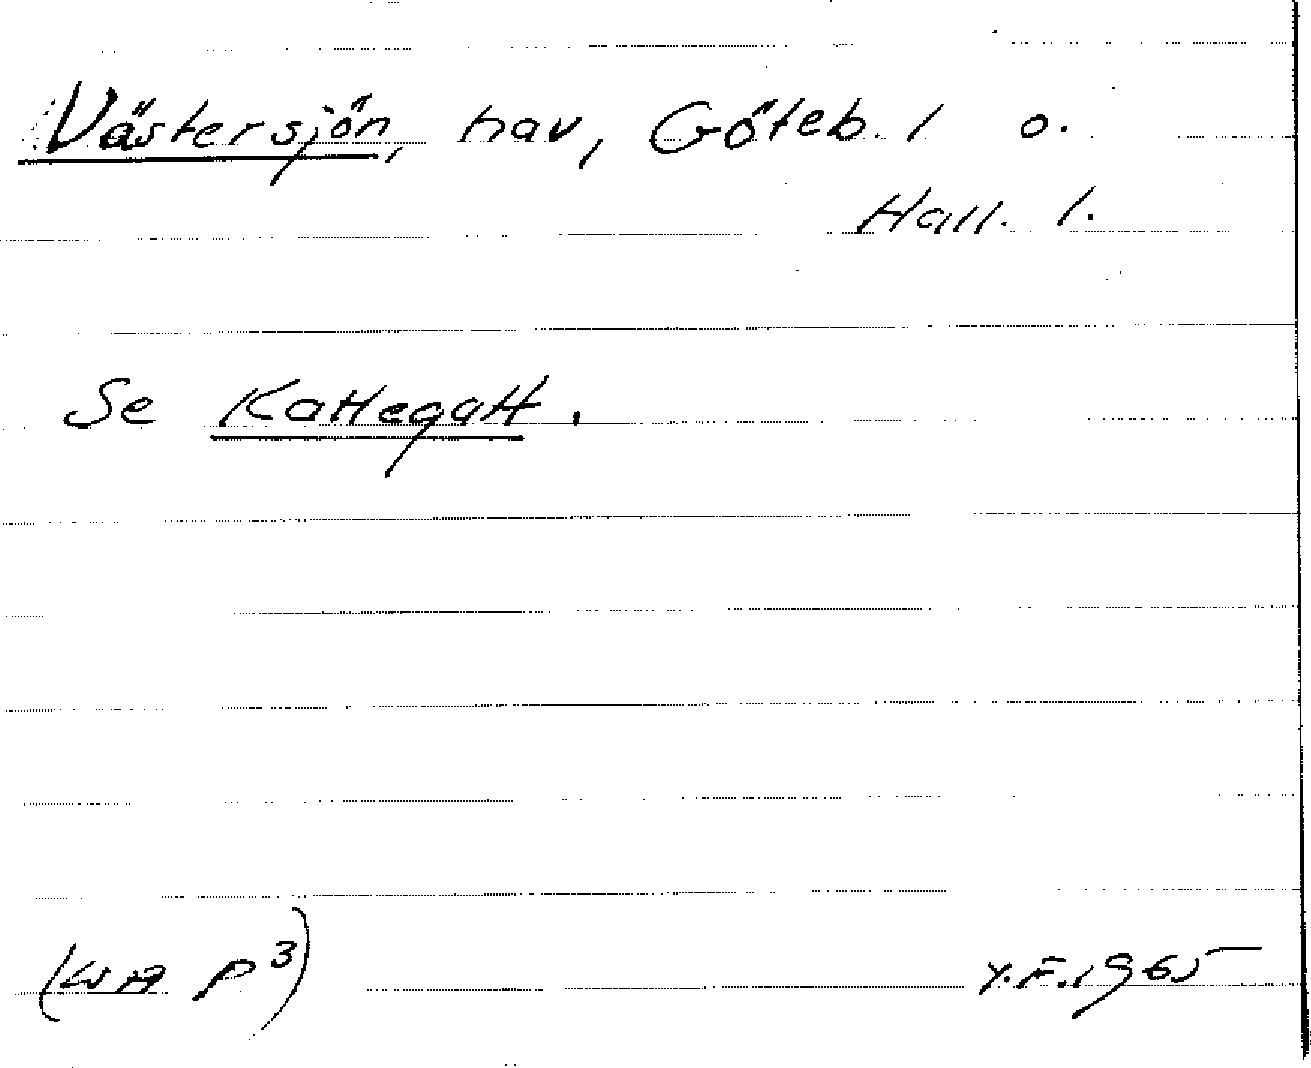 Västersjön, hav, Göteb. l o.
Hall. l.
Se Kattegatt.
(WA P³)
Y.F. 1965